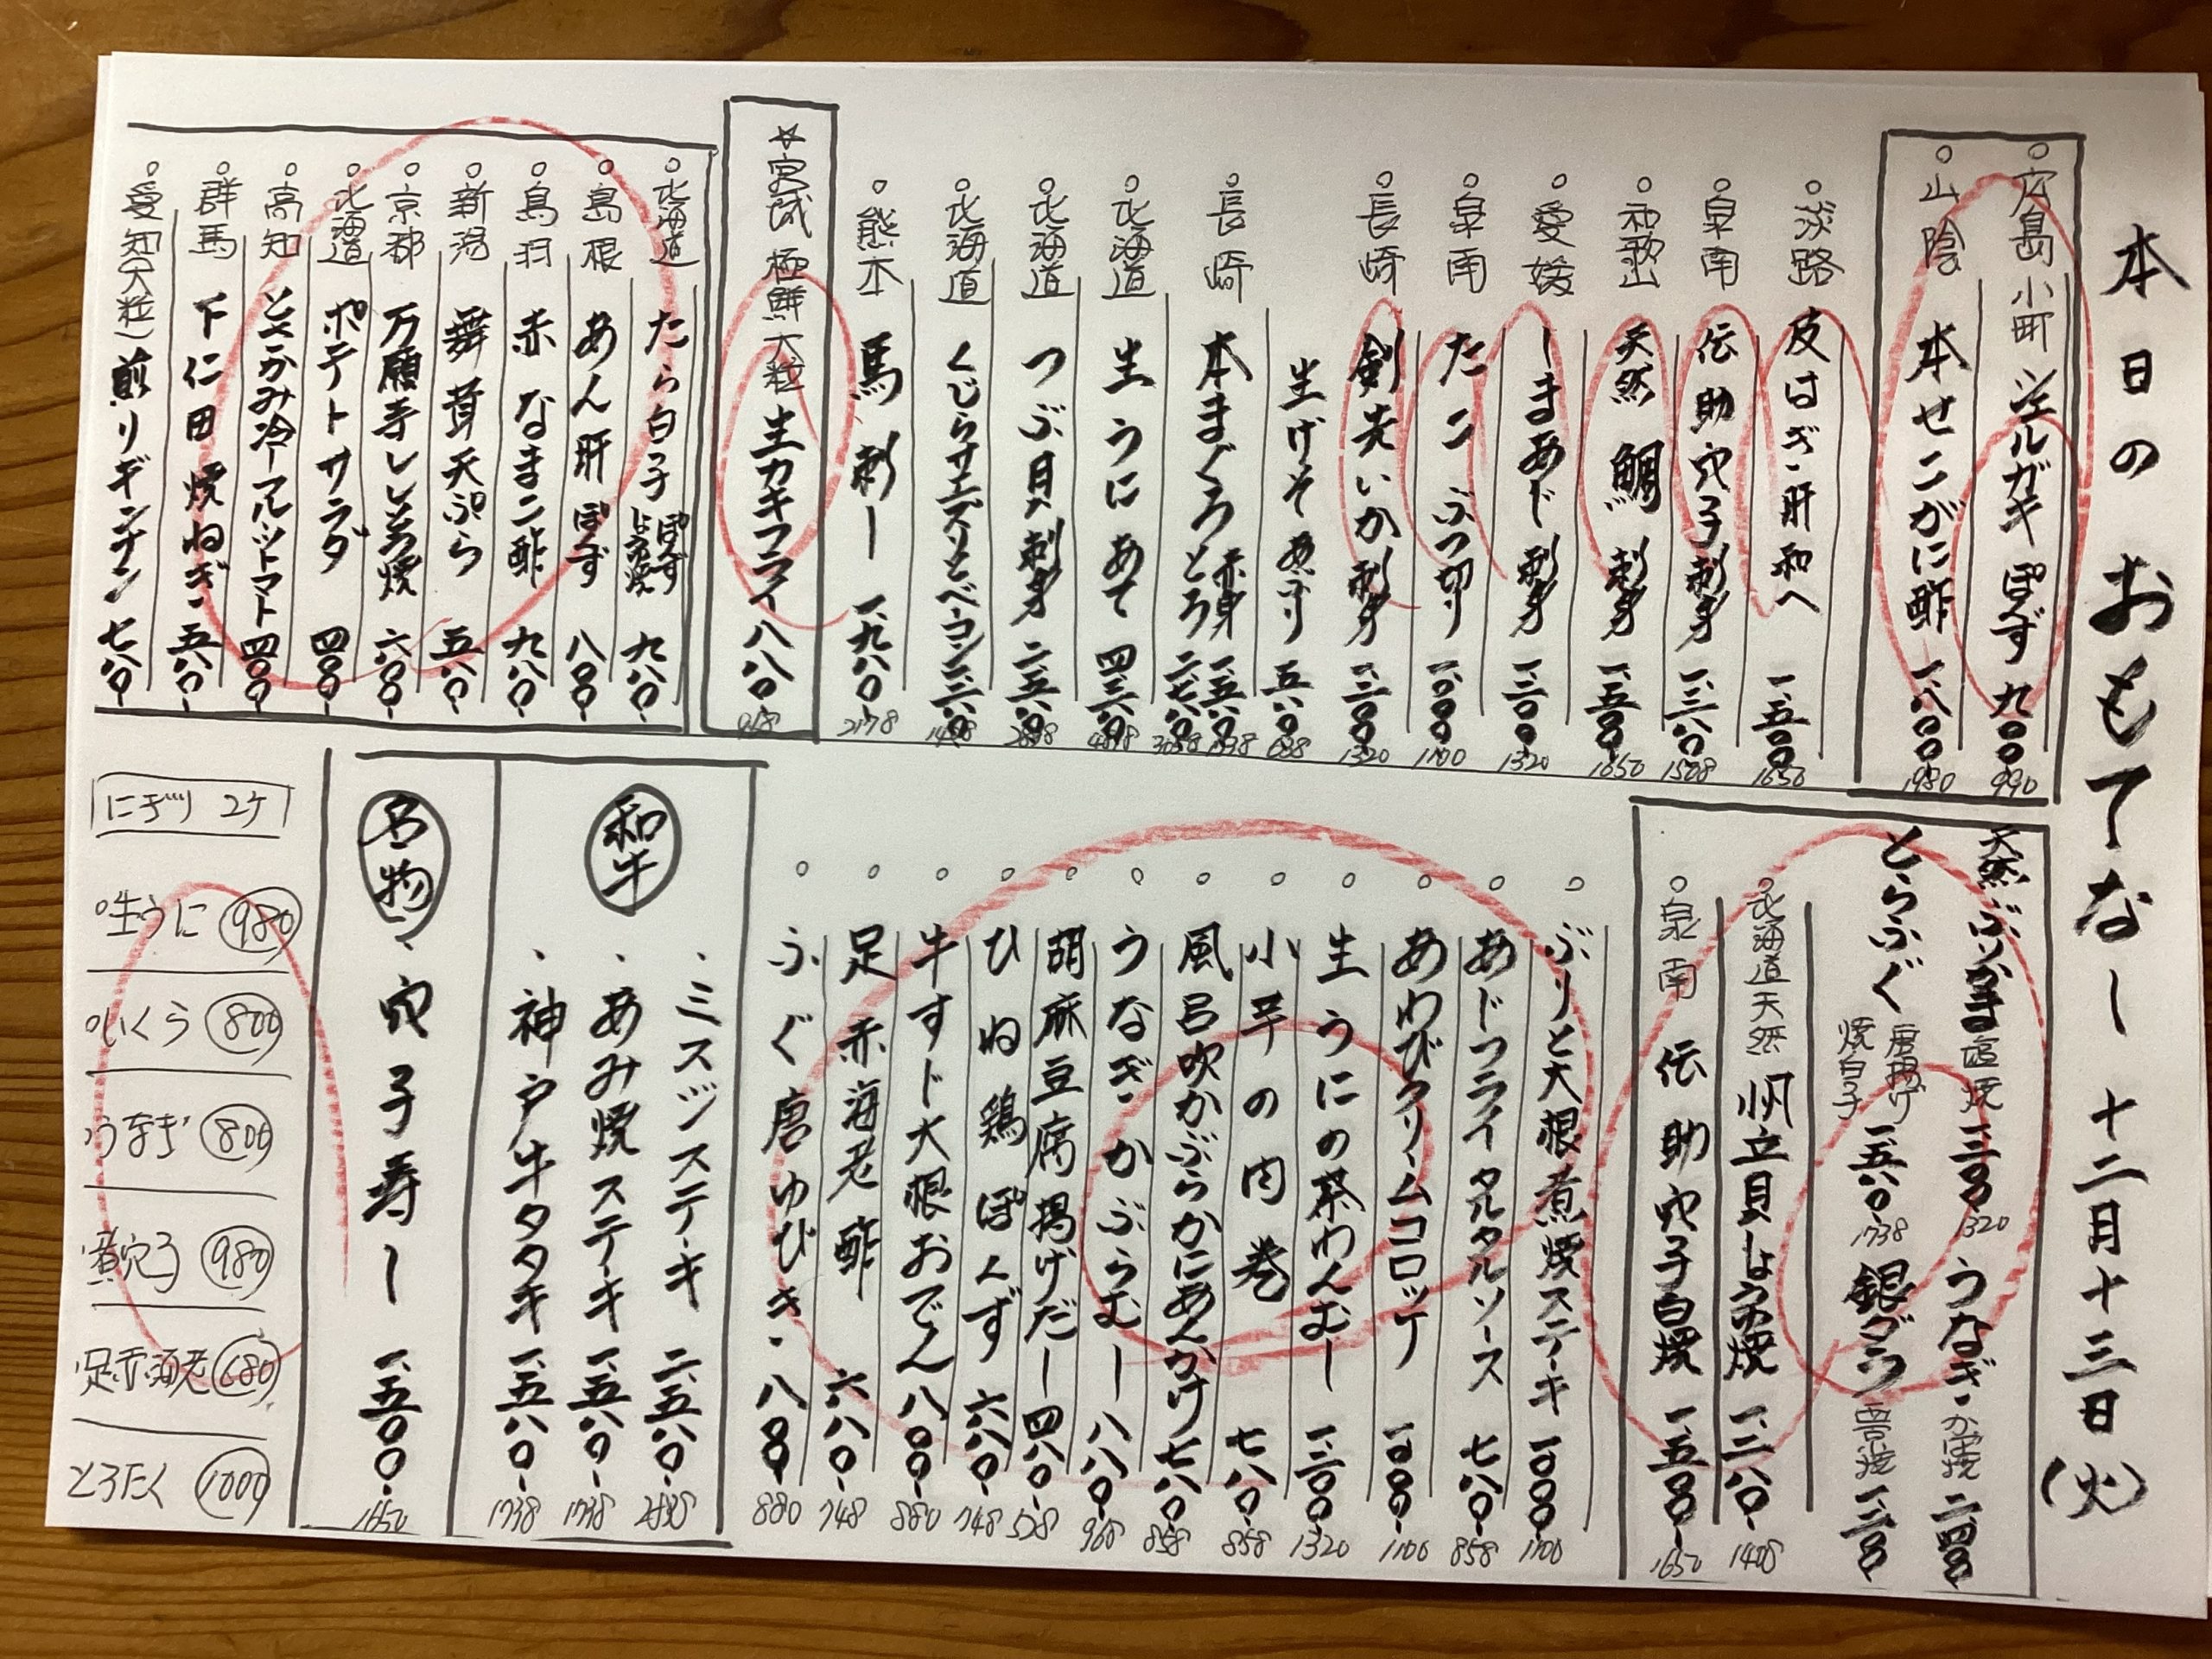 本日の おもてなし 十二月十三日(火)
広島 小町 シェルガキ ぽんず 九〇〇 990
山陰 本せこがに酢 一、八〇〇 1980
淡路 皮はぎ 肝和へ 一、五〇〇 1650
泉南 伝助穴子 刺身 1508
和歌山 天然 鯛 刺身 一、五〇〇 1650
愛媛 しまあじ 刺身 一、二〇〇 1320
泉南 たこ ぶつ切り 一、〇〇〇 1100
長崎 剣先いか 刺身 一、二〇〇 1320
生げそ あぶり 五八〇
長崎 本まぐろ 赤身 一、五八〇 とろ 二、七八〇 3058
北海道 生うに あて
北海道 つぶ貝 刺身
北海道 くじらサエズリとベーコン
熊本 馬刺し 一、九八〇 2178
☆宮城 極鮮大粒 生カキフライ 八八〇 968
北海道 たら白子 ぽんず しょう油焼 九八〇
島根 あん肝 ぽんず 八〇〇
鳥羽 赤なまこ酢 九八〇
新潟 舞茸天ぷら 五八〇
京都 万願寺ししとう焼 六〇〇
北海道 ポテトサラダ 四〇〇
高知 とさかみ冷しフルーツトマト 四〇〇
群馬 下仁田 焼ねぎ 五八〇
愛知(大粒) 煎りギンナン 七八〇
天然 ぶりかま 塩焼 一、二〇〇 1320
うなぎ かば焼 二、四〇〇
とらふぐ 唐揚げ 焼白子 一、五八〇 1738
銀ダラ 西京焼 一、二〇〇
北海道天然 帆立貝しょう油焼 一、二八〇 1408
泉南 伝助穴子白焼 一、五〇〇 1650
ぶりと大根煮焼ステーキ 一、〇〇〇 1100
あじフライ タルタルソース 七八〇 858
あわびクリームコロッケ 一、〇〇〇 1100
生うにの茶わんむし 一、二〇〇 1320
小芋の肉巻 七八〇 858
風呂吹かぶらかにあんかけ 七八〇 858
うなぎ かぶらむし 八八〇 968
胡麻豆腐揚げだし 四八〇 528
ひね鶏 ぽんず 六八〇 748
牛すじ大根おでん 八〇〇 880
足赤海老 酢 六八〇 748
ふぐ唐ゆびき 八〇〇 880
和牛
ミスジステーキ 二、五八〇
あみ焼ステーキ 一、五八〇 1738
神戸牛タタキ 一、五八〇 1738
名物
穴子寿し 一、五〇〇 1650
にぎり 2ケ
生うに 980
いくら 800
うなぎ 800
煮穴子 980
足赤海老 680
とろたく 1000